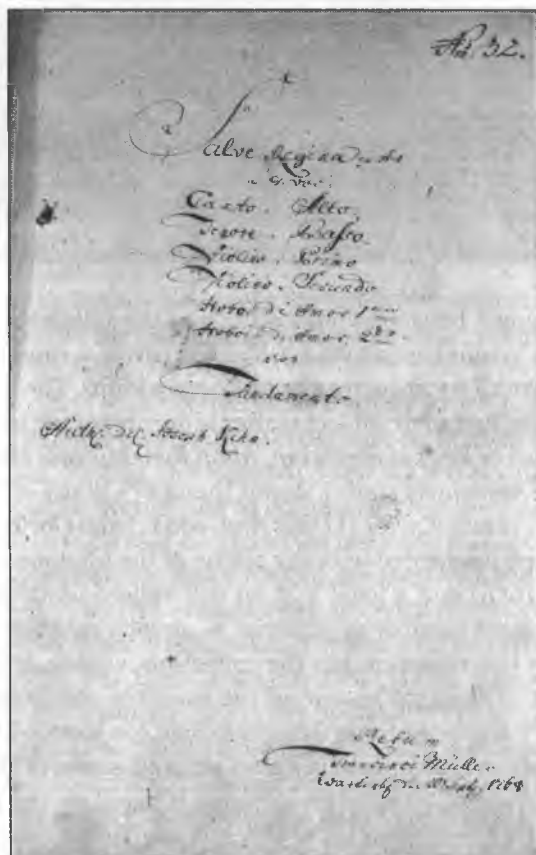 No. 32.
Salve Regina
Canto. Alto.
Tenore. Basso.
Violino. Primo
Violino. Secundo
Hoboi di Amor. 1mo
Hoboi di Amor. 2do.
con
Fundamento
Auth: Del Joseph
Rerum
Francisci Müller
1768